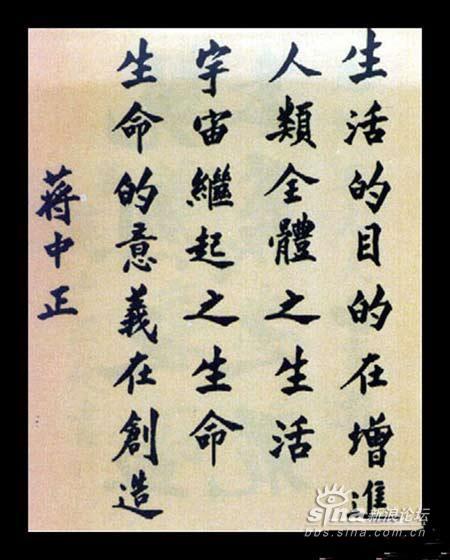 生活的目的在增進
人類全體之生活
宇宙繼起之生命
生命的意義在創造
蔣中正
sina 新浪论坛
bbs.sina.com.cn